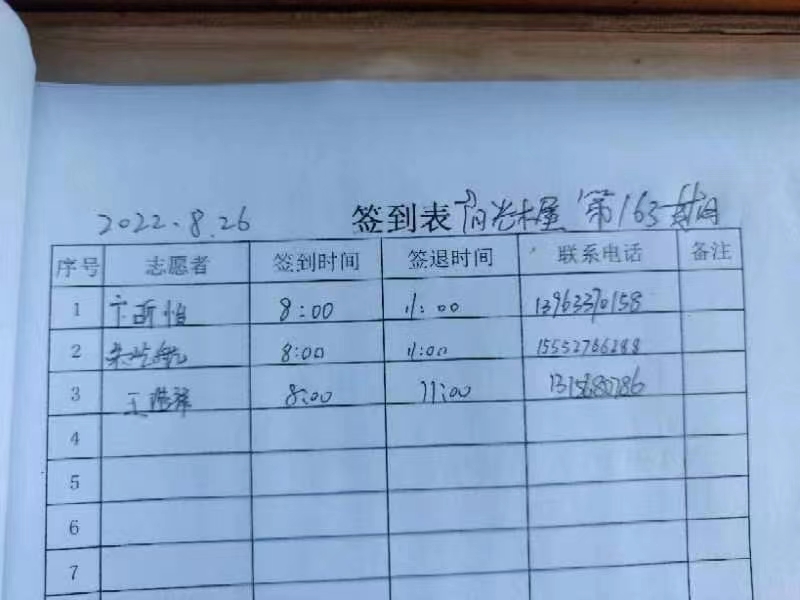 2022.8.26 签到表 阳光木屋 第163期
序号 志愿者 签到时间 签退时间 联系电话 备注
1 8:00 11:00 13963370158
2 8:00 11:00 15552766288
3 王 8:00 11:00
4
5
6
7